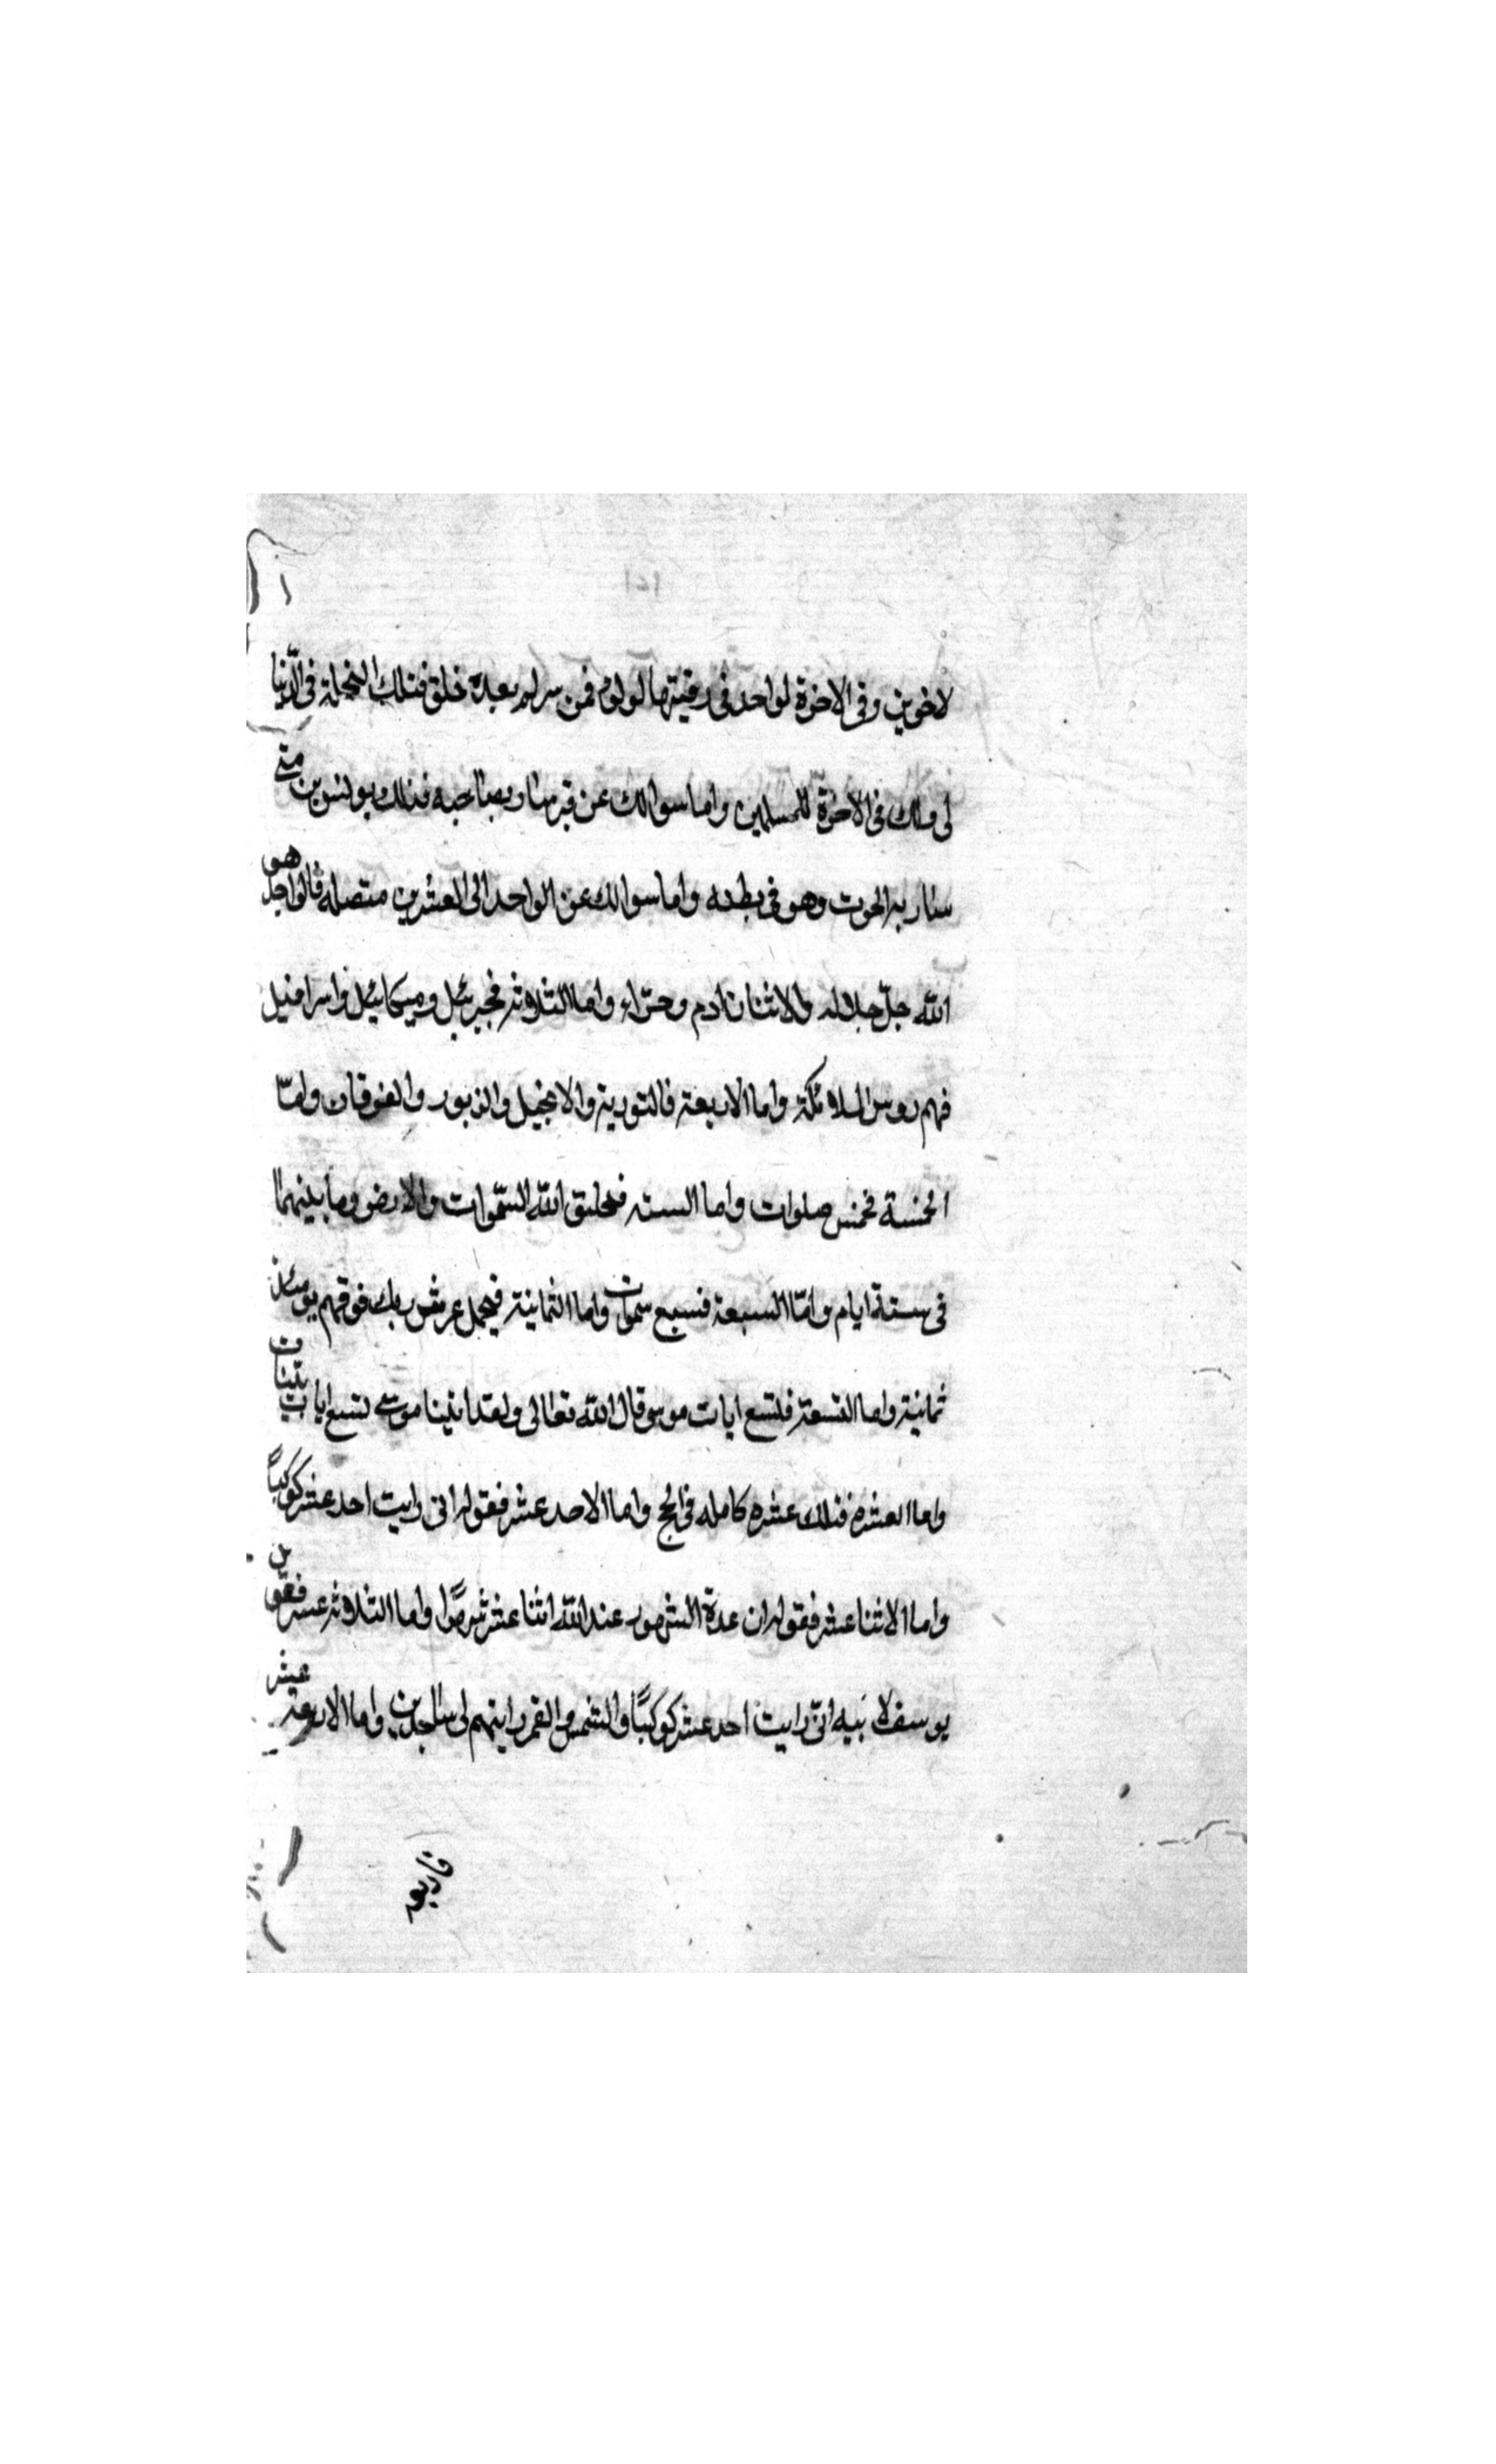 لاخوين وفى الاخرة لواحد فى رقيتها لولوم فمن سرلم بعده خلق فتلك النخلة فى الدّنيا
لى ملك فى الاخرة للمسلمين واما سوالك عن قبر سار بصاحبه فذلك يونس بن متى
سار به الحوت وهو فى بطنه واما سوالك عن الواحد الى العشرين متصله فالواحد هو
الله جلّ جلاله والاثنان ادم وحوّاء واما الثلاثة فجبرئيل وميكائيل واسرافيل
فهم روس الملائكة واما الاربعة فالتورية والانجيل والزبور والفرقان وامّا
الخمسة فخمس صلوات واما السته فخلق الله السّموات والارض وما بينهما
فى ستة ايام وامّا السبعة فسبع سموات واما الثمانية فيحمل عرش ربك فوقهم يومئذ
ثمانية واما التسعة فلتسع ايات موسى قال الله تعالى ولقد اتينا موسى تسع ايات بينات
واما العشره فتلك عشره كامله فى الحج واما الاحد عشر فقوله انى رايت احد عشر كوكباً
واما الاثنا عشر فقوله ان عدة الشهور عند الله اثنا عشر شهرًا واما الثلاثة عشر فقول
يوسف لابيه انى رايت احد عشر كوكبًا والشمس والقمر رايتهم لى ساجدين واما الاربعة عشر